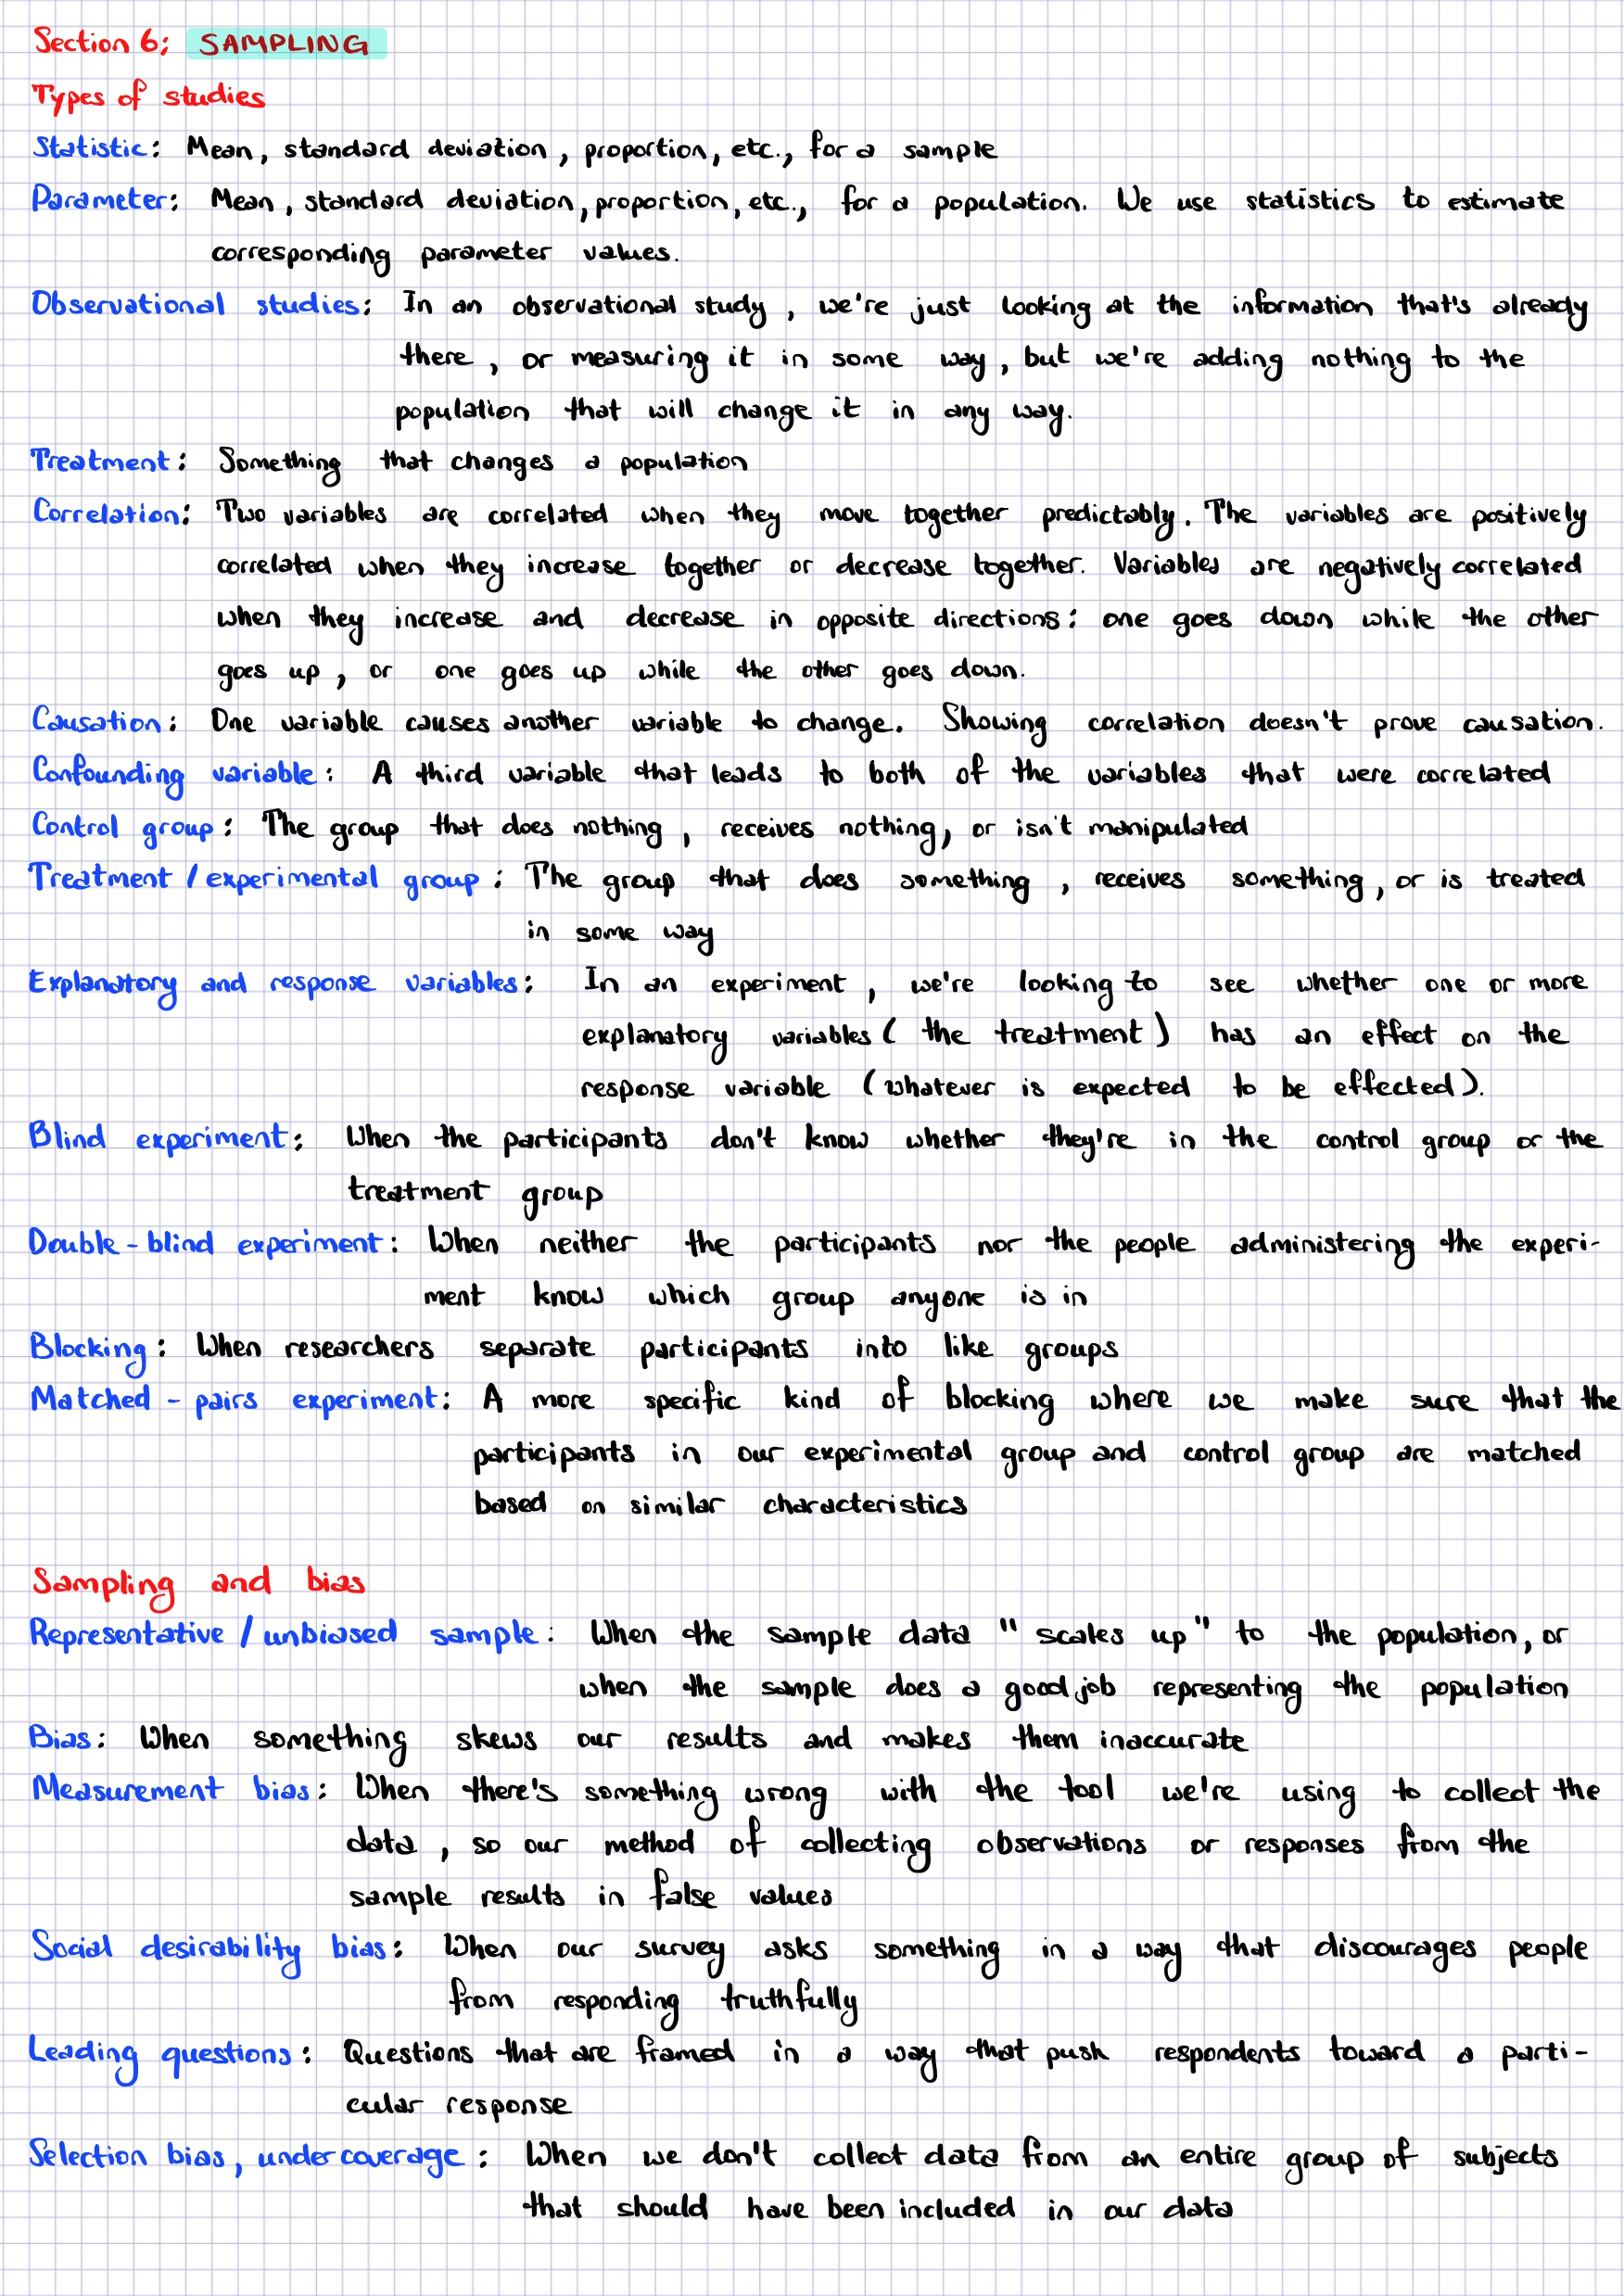 Section 6: SAMPLING
Types of studies
Statistic: Mean, standard deviation, proportion, etc., for a sample
Parameter: Mean, standard deviation, proportion, etc., for a population. We use statistics to estimate
corresponding parameter values.
Observational studies: In an observational study, we're just looking at the information that's already
there, or measuring it in some way, but we're adding nothing to the
population that will change it in any way.
Treatment: Something that changes a population
Correlation: Two variables are correlated when they move together predictably. The variables are positively
correlated when they increase together or decrease together. Variables are negatively correlated
when they increase and decrease in opposite directions: one goes down while the other
goes up, or one goes up while the other goes down.
Causation: One variable causes another variable to change. Showing correlation doesn't prove causation.
Confounding variable: A third variable that leads to both of the variables that were correlated
Control group: The group that does nothing, receives nothing, or isn't manipulated
Treatment / experimental group: The group that does something, receives something, or is treated
in some way
Explanatory and response variables: In an experiment, we're looking to see whether one or more
explanatory variables (the treatment) has an effect on the
response variable (whatever is expected to be effected).
Blind experiment: When the participants don't know whether they're in the control group or the
treatment group
Double-blind experiment: When neither the participants nor the people administering the experi-
ment know which group anyone is in
Blocking: When researchers separate participants into like groups
Matched-pairs experiment: A more specific kind of blocking where we make sure that the
participants in our experimental group and control group are matched
based on similar characteristics
Sampling and bias
Representative / unbiased sample: When the sample data "scales up" to the population, or
when the sample does a good job representing the population
Bias: When something skews our results and makes them inaccurate
Measurement bias: When there's something wrong with the tool we're using to collect the
data, so our method of collecting observations or responses from the
sample results in false values
Social desirability bias: When our survey asks something in a way that discourages people
from responding truthfully
Leading questions: Questions that are framed in a way that push respondents toward a parti-
cular response
Selection bias, undercoverage: When we don't collect data from an entire group of subjects
that should have been included in our data